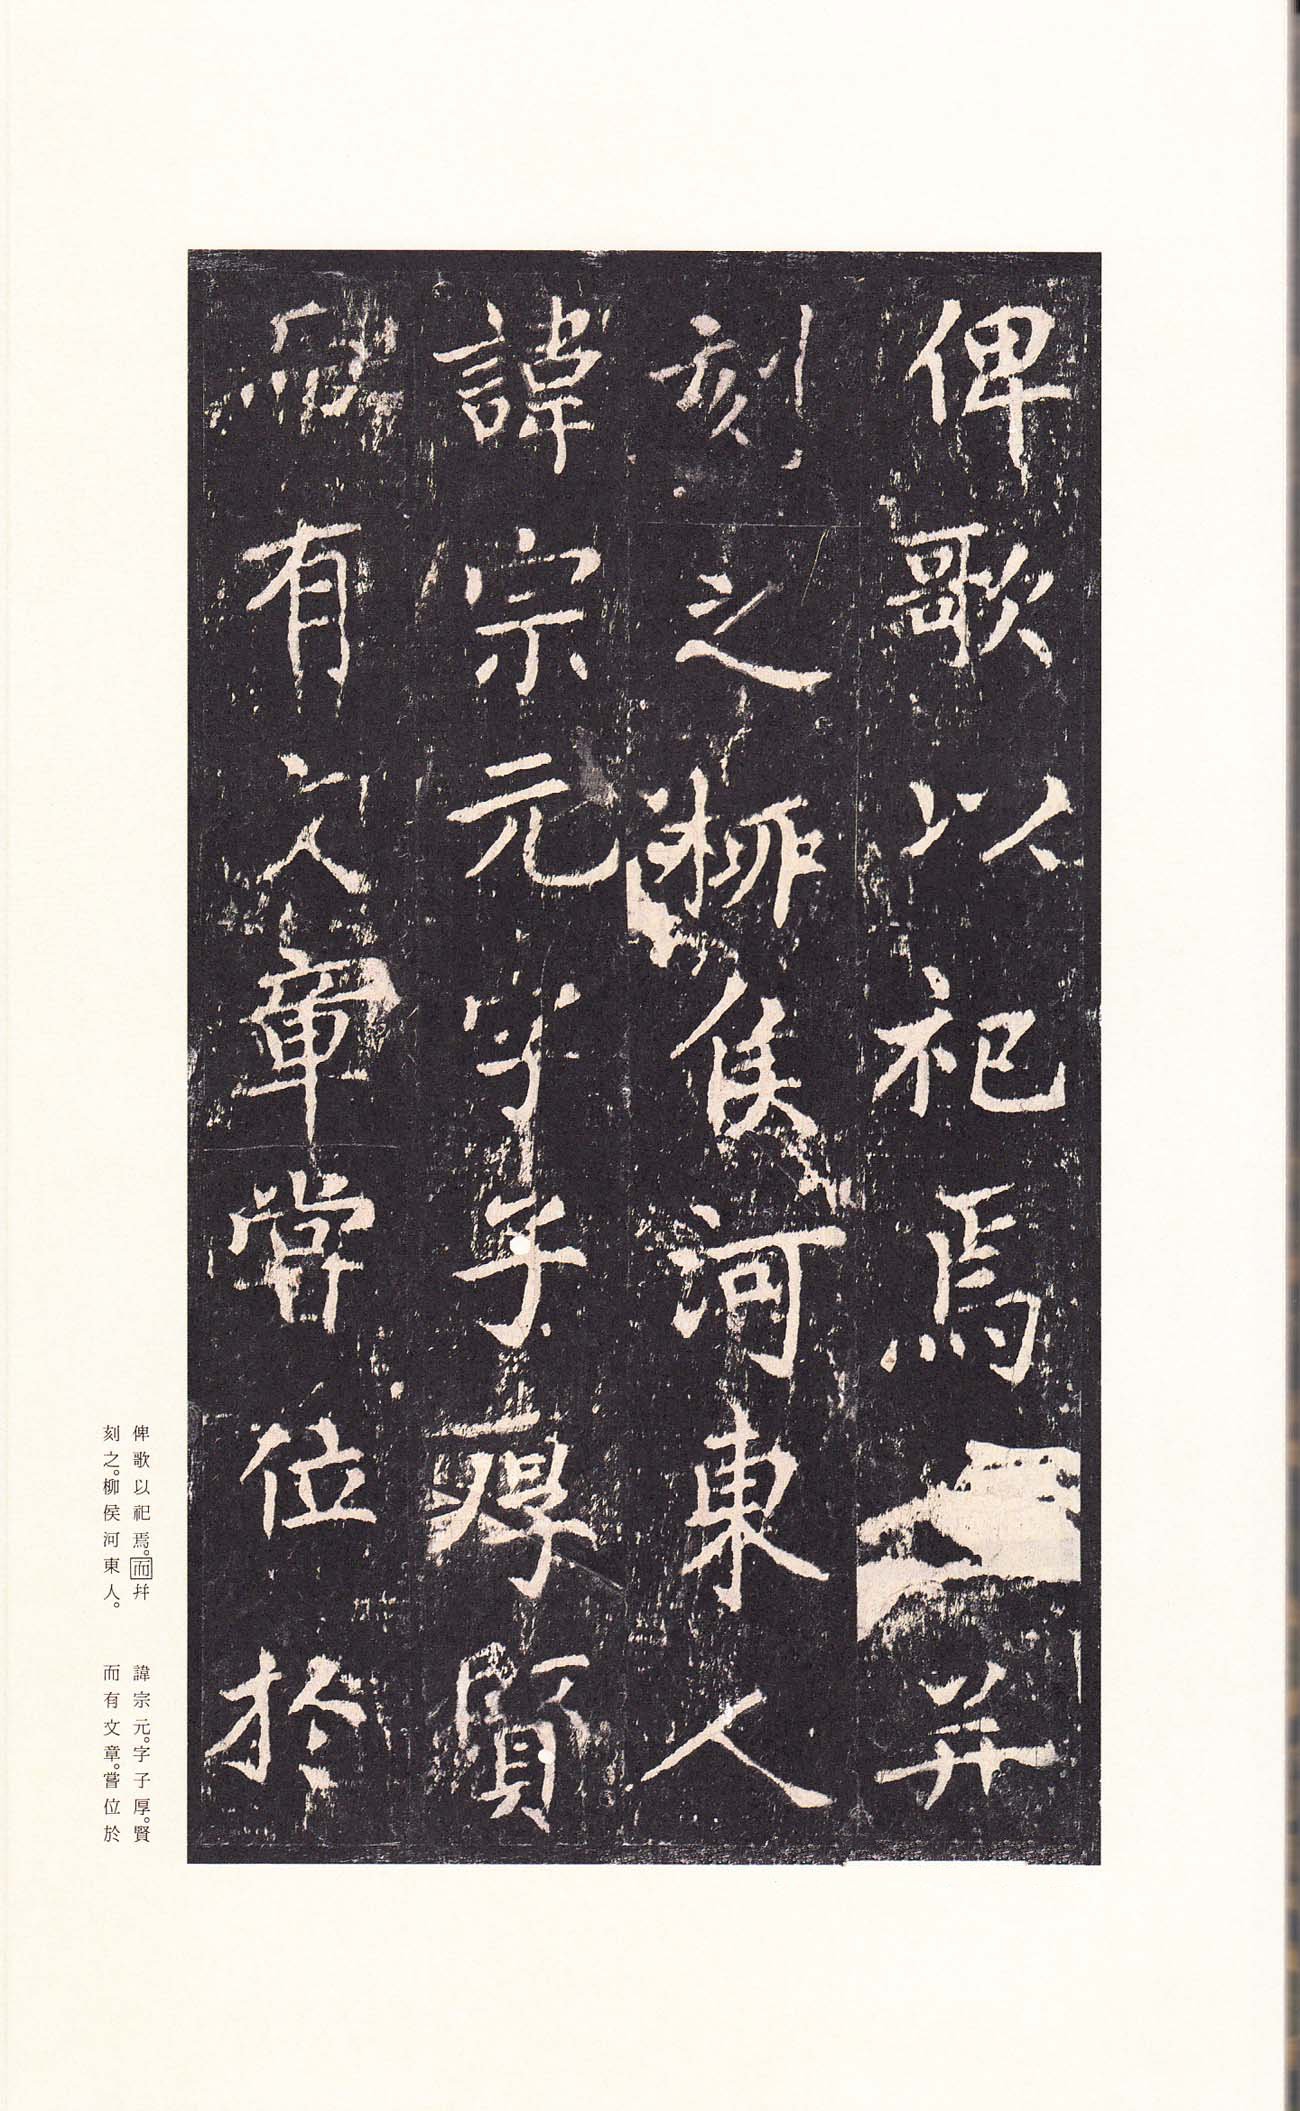 俾歌以祀焉并
刻之柳侯河東人
諱宗元字子厚賢
而有文章嘗位於
俾歌以祀焉。而幷
刻之。柳侯河東人。
諱宗元。字子厚。賢
而有文章。嘗位於